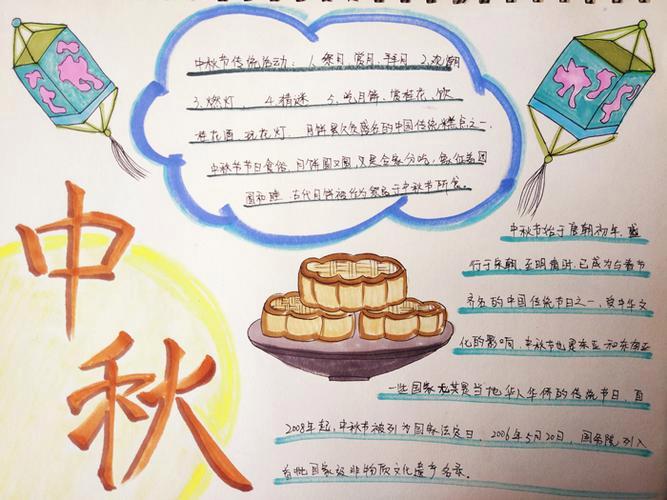 中秋节传统活动：1.祭月、赏月、拜月 2.观潮
3.燃灯、 4.猜谜、 5.吃月饼、赏桂花、饮
桂花酒、玩花灯、月饼是久负盛名的中国传统糕点之一
中秋节节日食俗，月饼圆又圆，又是合家分吃，象征着团
圆和睦，古代月饼被作为祭品于中秋节所食。
中秋
中秋节始于唐朝初年，盛
行于宋朝，至明清时，已成为与春节
齐名的中国传统节日之一，受中华文
化的影响，中秋节也是东亚和东南亚
一些国家尤其是当地华人华侨的传统节日，自
2008年起，中秋节被列为国家法定日，2006年5月20日，国务院列入
首批国家级非物质文化遗产名录。